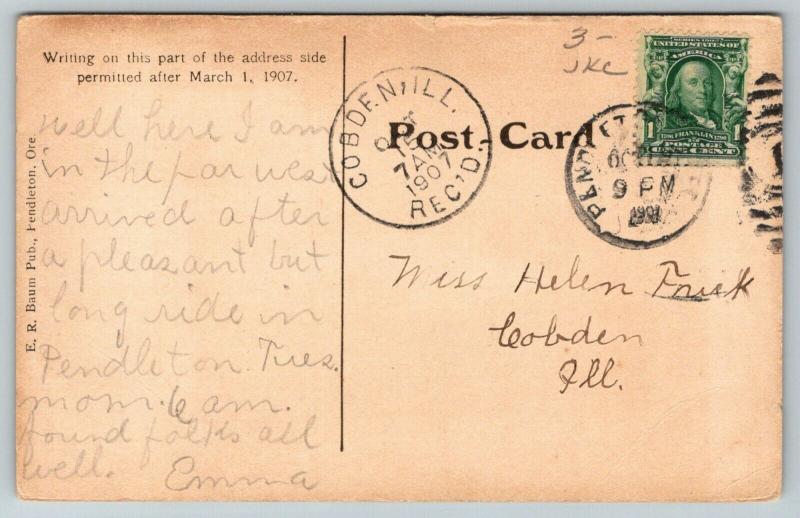 Writing on this part of the address side
permitted after March 1, 1907.
E. R. Baum Pub., Pendleton, Ore.
well here I am
in the far west
arrived after
a pleasant but
long ride in
Pendleton Tues.
morn. 6 am.
found folks all
well. Emma
COBDEN, ILL.
OCT
15
7 AM
1907
REC'D.
Post Card
3-
JKC
SERIES 1902
UNITED STATES OF
AMERICA
1 FRANKLIN 1
POSTAGE
ONE CENT
PENDLETON
OCT
9 PM
1907
Miss Helen Frick
Cobden
Ill.